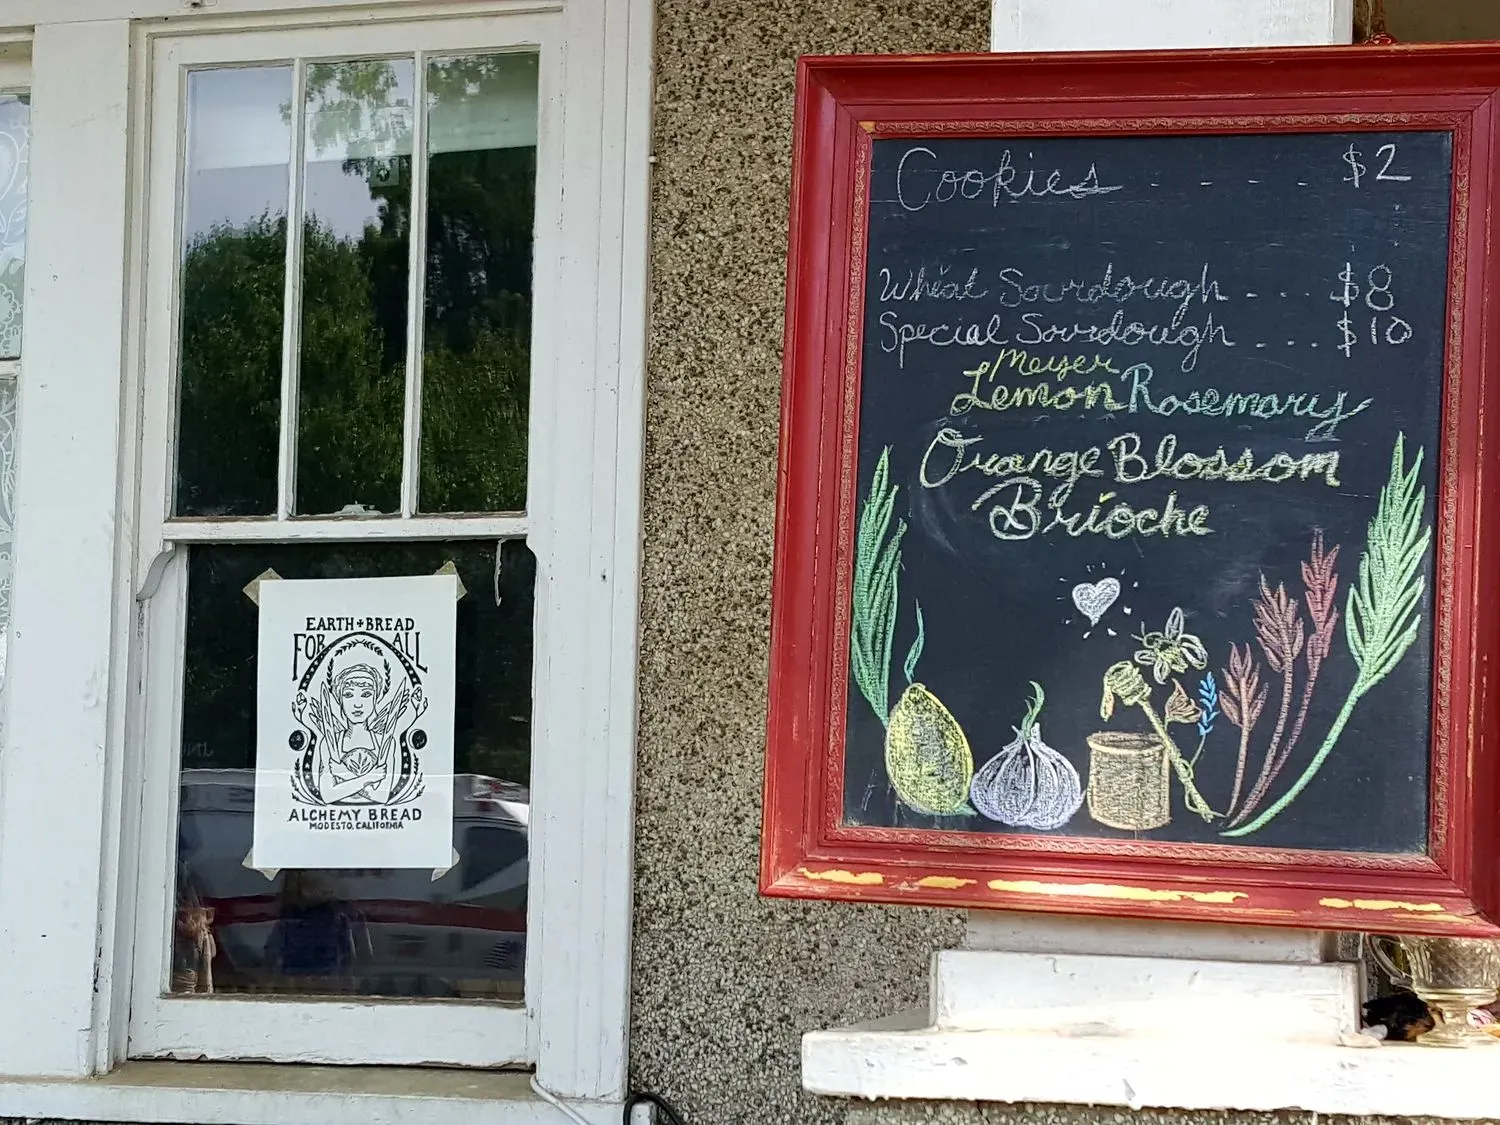 EARTH + BREAD
FOR ALL
ALCHEMY BREAD
MODESTO, CALIFORNIA
Cookies . - - - . $2
Wheat Sourdough . . . $8
Special Sourdough . . . . $10
Meyer
Lemon Rosemary
Orange Blossom
Brioche